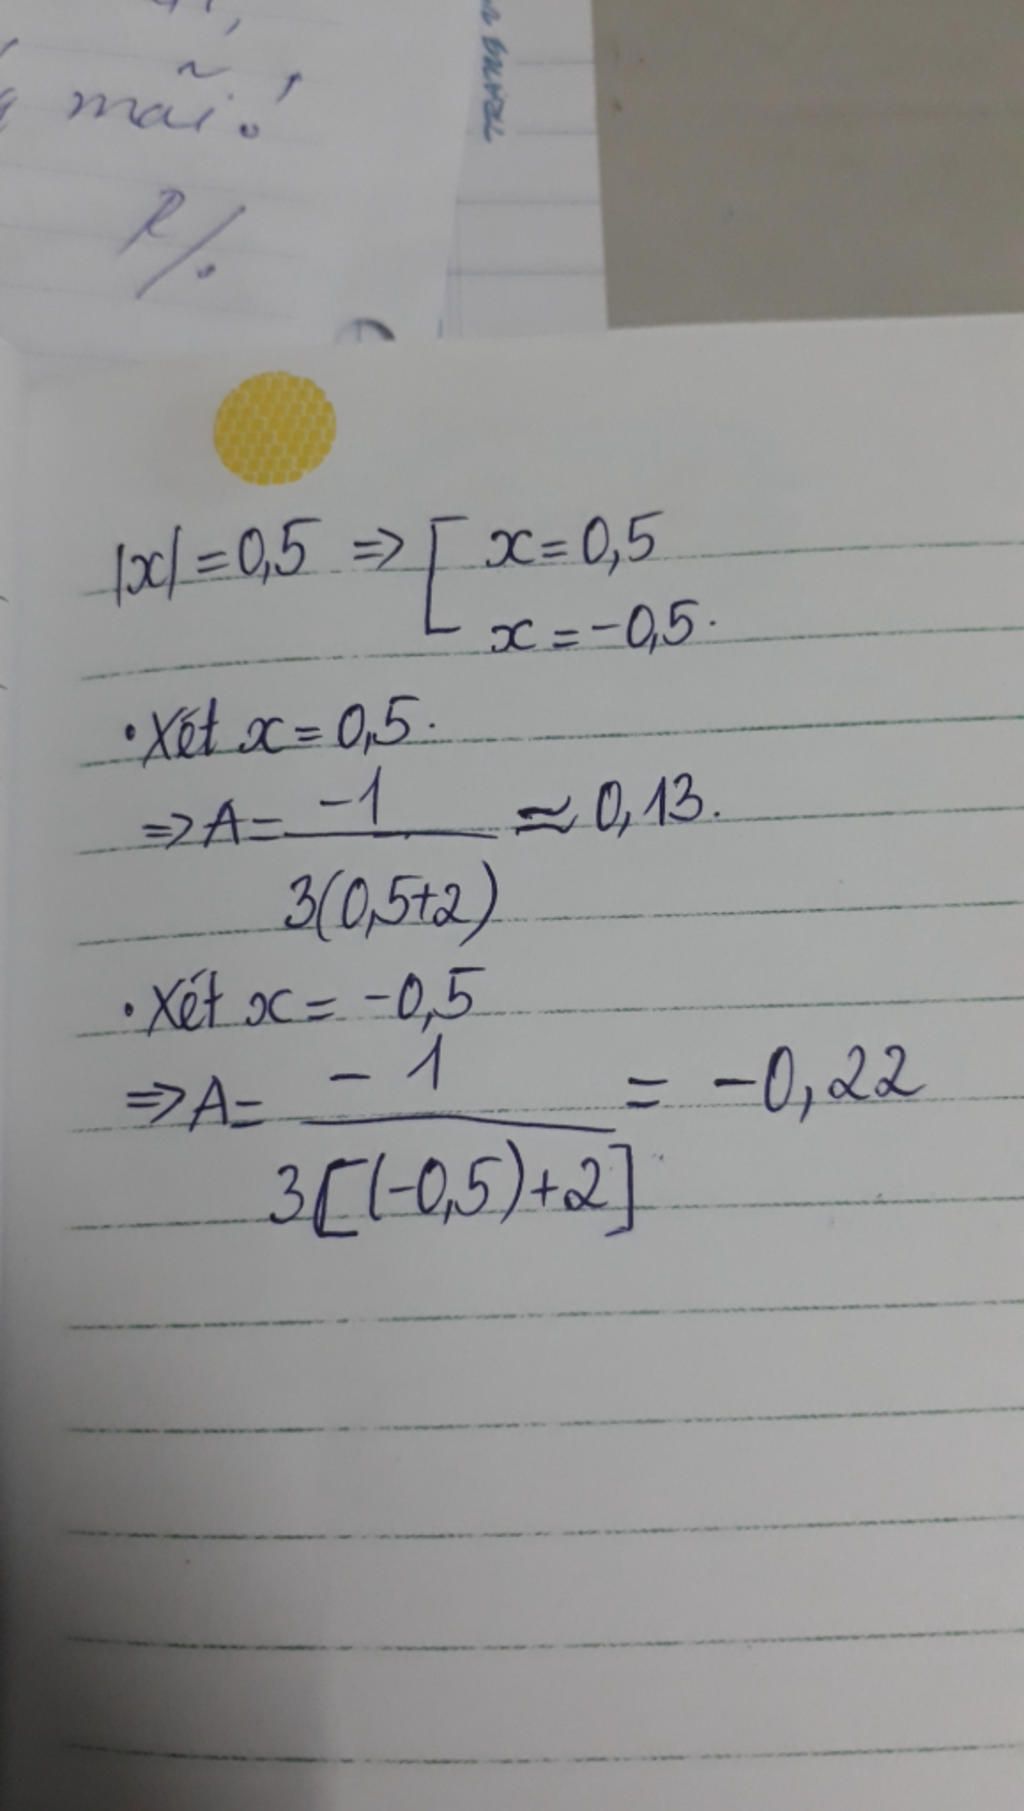 mãi!
R/.
|x| = 0,5 => [ x = 0,5
x = -0,5.
• Xét x = 0,5.
=> A = -1 / 3(0,5+2) ≈ 0,13.
• Xét x = -0,5
=> A = -1 / 3[(-0,5)+2] = -0,22